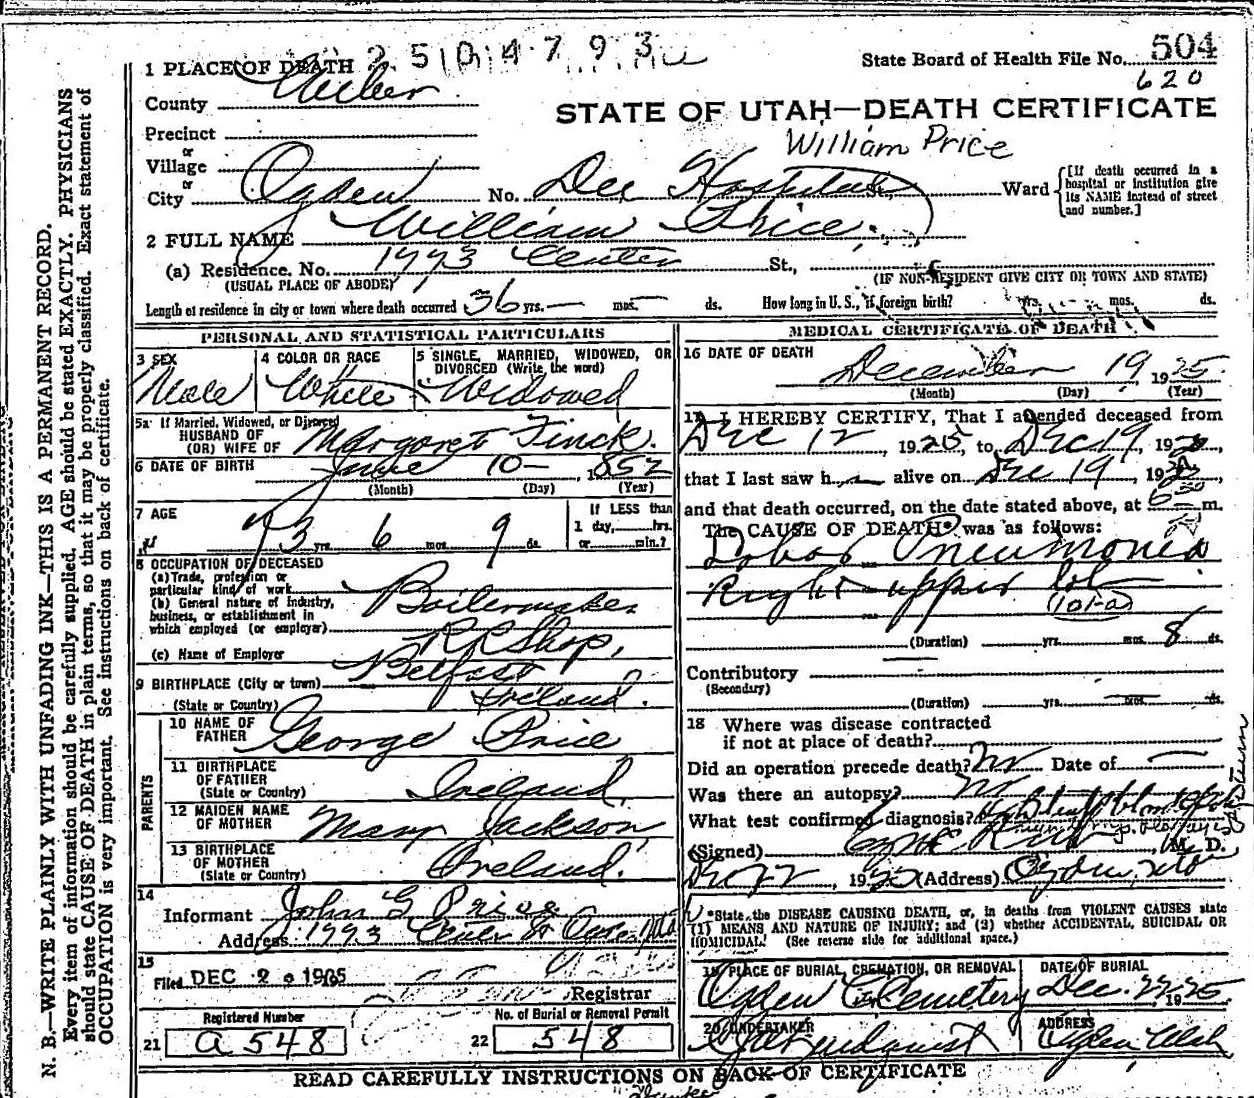 1 PLACE OF DEATH 2 5 0 4 7 9 3
State Board of Health File No. 504
620
County Weber
STATE OF UTAH—DEATH CERTIFICATE
Precinct
William Price
or
Village
or
City Ogden No. Dee Hospital St., Ward
[If death occurred in a hospital or institution give its NAME instead of street and number.]
2 FULL NAME William Price
(a) Residence. No. 1773 Center St.,
(USUAL PLACE OF ABODE)
(IF NON-RESIDENT GIVE CITY OR TOWN AND STATE)
Length of residence in city or town where death occurred 36 yrs. — mos. — ds. How long in U. S., if foreign birth? yrs. mos. ds.
PERSONAL AND STATISTICAL PARTICULARS
3 SEX
Male
4 COLOR OR RACE
White
5 SINGLE, MARRIED, WIDOWED, OR DIVORCED (Write the word)
Widowed
5a If Married, Widowed, or Divorced
HUSBAND OF
(OR) WIFE OF Margaret Finck.
6 DATE OF BIRTH June 10 — 1852
(Month) (Day) (Year)
7 AGE
73 yrs. 6 mos. 9 ds.
If LESS than
1 day, hrs.
or min.?
8 OCCUPATION OF DECEASED
(a) Trade, profession or
particular kind of work Boilermaker
(b) General nature of Industry,
business, or establishment in
which employed (or employer) R R Shop,
(c) Name of Employer
9 BIRTHPLACE (City or town) Belfast
(State or Country) Ireland.
PARENTS
10 NAME OF FATHER George Price
11 BIRTHPLACE OF FATHER
(State or Country) Ireland,
12 MAIDEN NAME OF MOTHER Mary Jackson,
13 BIRTHPLACE OF MOTHER
(State or Country) Ireland.
14
Informant John G Price
Address 1773 Center St Ogden, Utah
15
Filed DEC 2 1905
Registrar
Registered Number
21 a 548
No. of Burial or Removal Permit
22 548
MEDICAL CERTIFICATE OF DEATH
16 DATE OF DEATH
December 19 1925.
(Month) (Day) (Year)
17 I HEREBY CERTIFY, That I attended deceased from
Dec 12, 1925, to Dec 19, 192
that I last saw h alive on Dec 19, 192
and that death occurred, on the date stated above, at 6 30 m.
The CAUSE OF DEATH* was as follows:
Lobar Pneumonia
Right upper lobe
(101-a)
(Duration) yrs. mos. 8 ds.
Contributory
(Secondary)
(Duration) yrs. mos. ds.
18 Where was disease contracted
if not at place of death?
Did an operation precede death? No Date of —
Was there an autopsy? No
What test confirmed diagnosis?
(Signed) M. D.
Dec 22, 1925 (Address) Ogden, Utah
*State the DISEASE CAUSING DEATH, or, in deaths from VIOLENT CAUSES state
(1) MEANS AND NATURE OF INJURY; and (2) whether ACCIDENTAL, SUICIDAL OR
HOMICIDAL. (See reverse side for additional space.)
19 PLACE OF BURIAL, CREMATION, OR REMOVAL
Ogden C. Cemetery
DATE OF BURIAL
Dec. 22 1925
20 UNDERTAKER
ADDRESS
Ogden Utah
READ CAREFULLY INSTRUCTIONS ON BACK OF CERTIFICATE
N. B.—WRITE PLAINLY WITH UNFADING INK—THIS IS A PERMANENT RECORD.
Every item of information should be carefully supplied. AGE should be stated EXACTLY. PHYSICIANS
should state CAUSE OF DEATH in plain terms, so that it may be properly classified. Exact statement of
OCCUPATION is very important. See instructions on back of certificate.